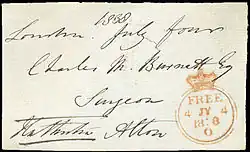 1838
London July four
Charles M. Burnett Esq
Surgeon
Alton
FREE
4 JY 4
1838
O